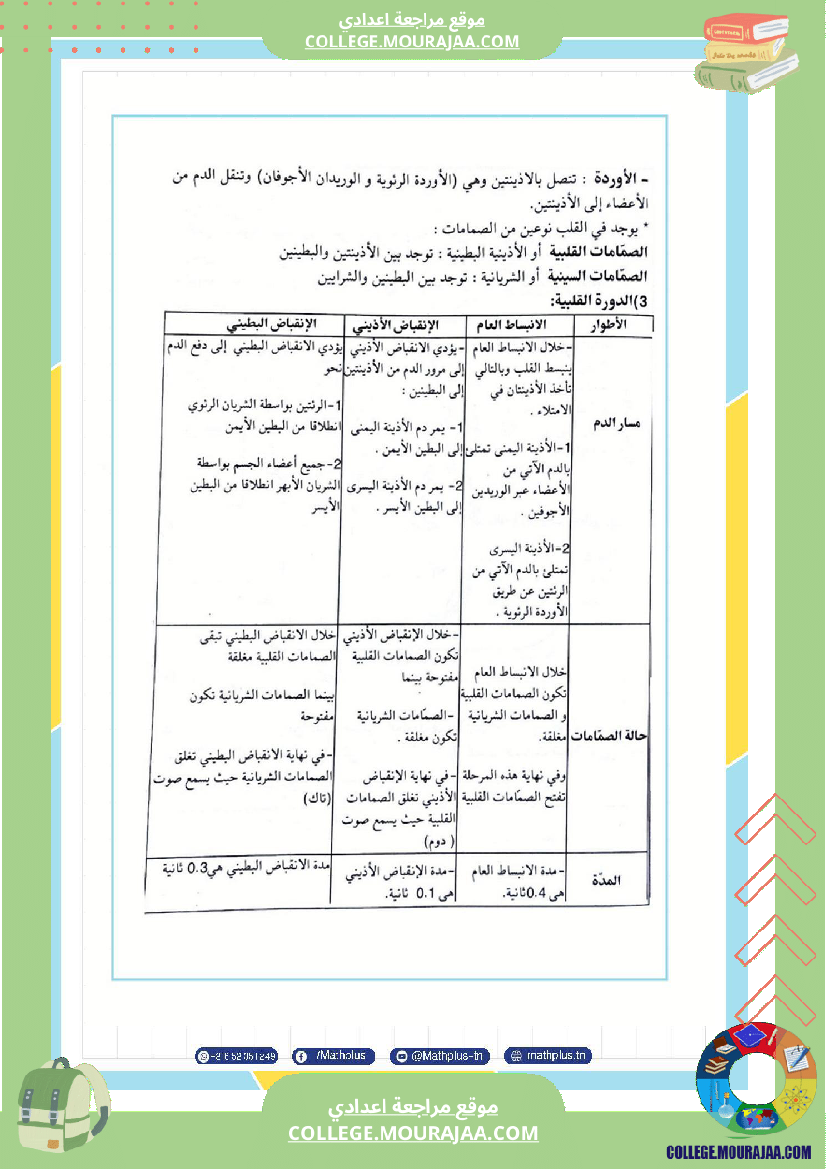 موقع مراجعة اعدادي
COLLEGE.MOURAJAA.COM
- الأوردة : تتصل بالاذينتين وهي (الأوردة الرئوية و الوريدان الأجوفان) وتنقل الدم من
الأعضاء إلى الأذينتين.
* يوجد في القلب نوعين من الصمامات :
الصمّامات القلبية أو الأذينية البطينية : توجد بين الأذينتين والبطينين
الصمّامات السينية أو الشريانية : توجد بين البطينين والشرايين
3)الدورة القلبية:
الأطوار
الانبساط العام
الإنقباض الأذيني
الإنقباض البطيني
مسار الدم
-خلال الانبساط العام
ينبسط القلب وبالتالي
تأخذ الأذينتان في
الامتلاء .
1-الأذينة اليمنى تمتلئ
بالدم الآتي من
الأعضاء عبر الوريدين
الأجوفين .
2-الأذينة اليسرى
تمتلئ بالدم الآتي من
الرئتين عن طريق
الأوردة الرئوية .
-يؤدي الانقباض الأذيني
إلى مرور الدم من الأذينتين
إلى البطينين :
1- يمر دم الأذينة اليمنى
إلى البطين الأيمن .
2- يمر دم الأذينة اليسرى
إلى البطين الأيسر .
يؤدي الانقباض البطيني إلى دفع الدم
نحو
1-الرئتين بواسطة الشريان الرئوي
انطلاقا من البطين الأيمن
2-جميع أعضاء الجسم بواسطة
الشريان الأبهر انطلاقا من البطين
الأيسر
حالة الصمّامات
خلال الانبساط العام
تكون الصمامات القلبية
و الصمامات الشريانية
مغلقة.
وفي نهاية هذه المرحلة
تفتح الصمّامات القلبية
-خلال الإنقباض الأذيني
تكون الصمامات القلبية
مفتوحة بينما
-الصمّامات الشريانية
تكون مغلقة .
-في نهاية الإنقباض
الأذيني تغلق الصمامات
القلبية حيث يسمع صوت
( دوم)
خلال الانقباض البطيني تبقى
الصمامات القلبية مغلقة
بينما الصمامات الشريانية تكون
مفتوحة
-في نهاية الانقباض البطيني تغلق
الصمامات الشريانية حيث يسمع صوت
(تاك)
المدّة
-مدة الانبساط العام
هي 0.4ثانية.
-مدة الإنقباض الأذيني
هي 0.1 ثانية.
مدة الانقباض البطيني هي0.3 ثانية
/Mathplus
@Mathplus-tn
mathplus.tn
موقع مراجعة اعدادي
COLLEGE.MOURAJAA.COM
COLLEGE.MOURAJAA.COM